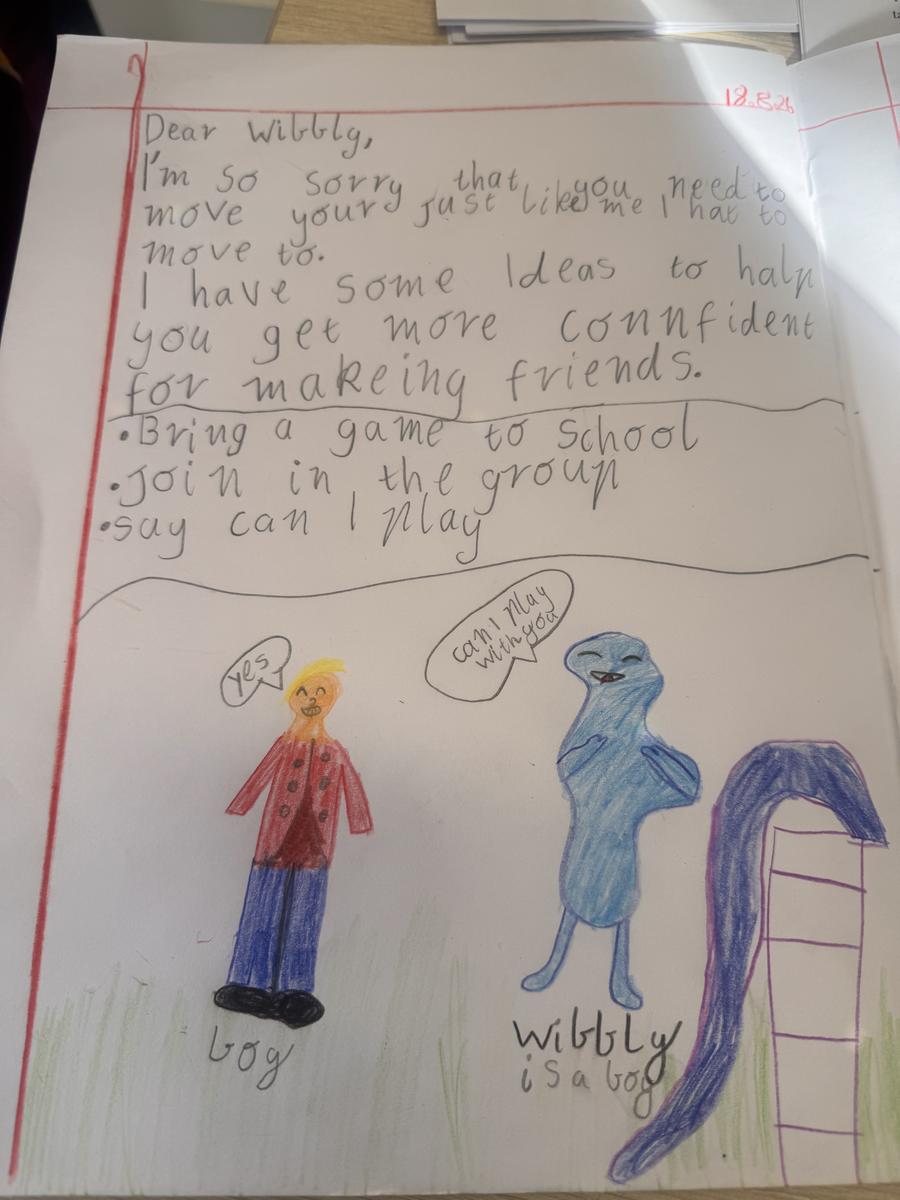 18.5.26
Dear Wibbly,
I'm so sorry that you need to
move your just like me I hat to
move to.
I have some Ideas to halp
you get more connnfident
for makeing friends.
•Bring a game to School
•Join in the group
•say can I play
can I play
with you
yes
boy
Wibbly
is a boy